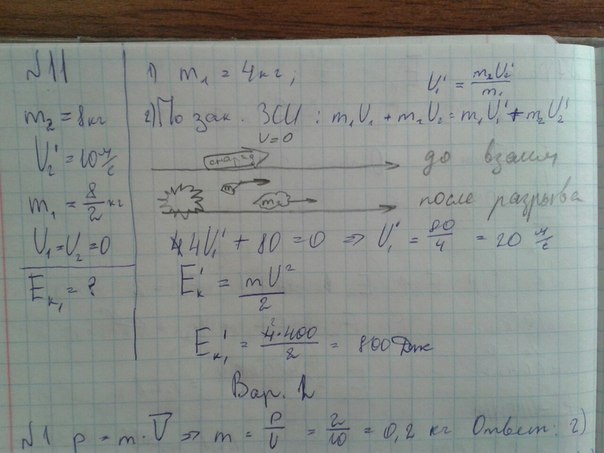 №11
m₂ = 8 кг
V₂' = 10 м/с
m₁ = 8/2 кг
V₁ = V₂ = 0
Eк₁ = ?
1) m₁ = 4 кг;
V₁' = m₂V₂'/m₁
2) По зак. ЗСИ: m₁V₁ + m₂V₂ = m₁V₁' + m₂V₂'
V=0
снаряд
до взаим
m₁
m₂
после разрыва
4V₁' + 80 = 0 ⇒ V₁' = 80/4 = 20 м/с
Eк' = mV²/2
Eк₁' = 4·400/2 = 800 Дж
Вар. 2
№1 p = m·V ⇒ m = p/V = 2/10 = 0,2 кг Ответ: 2)